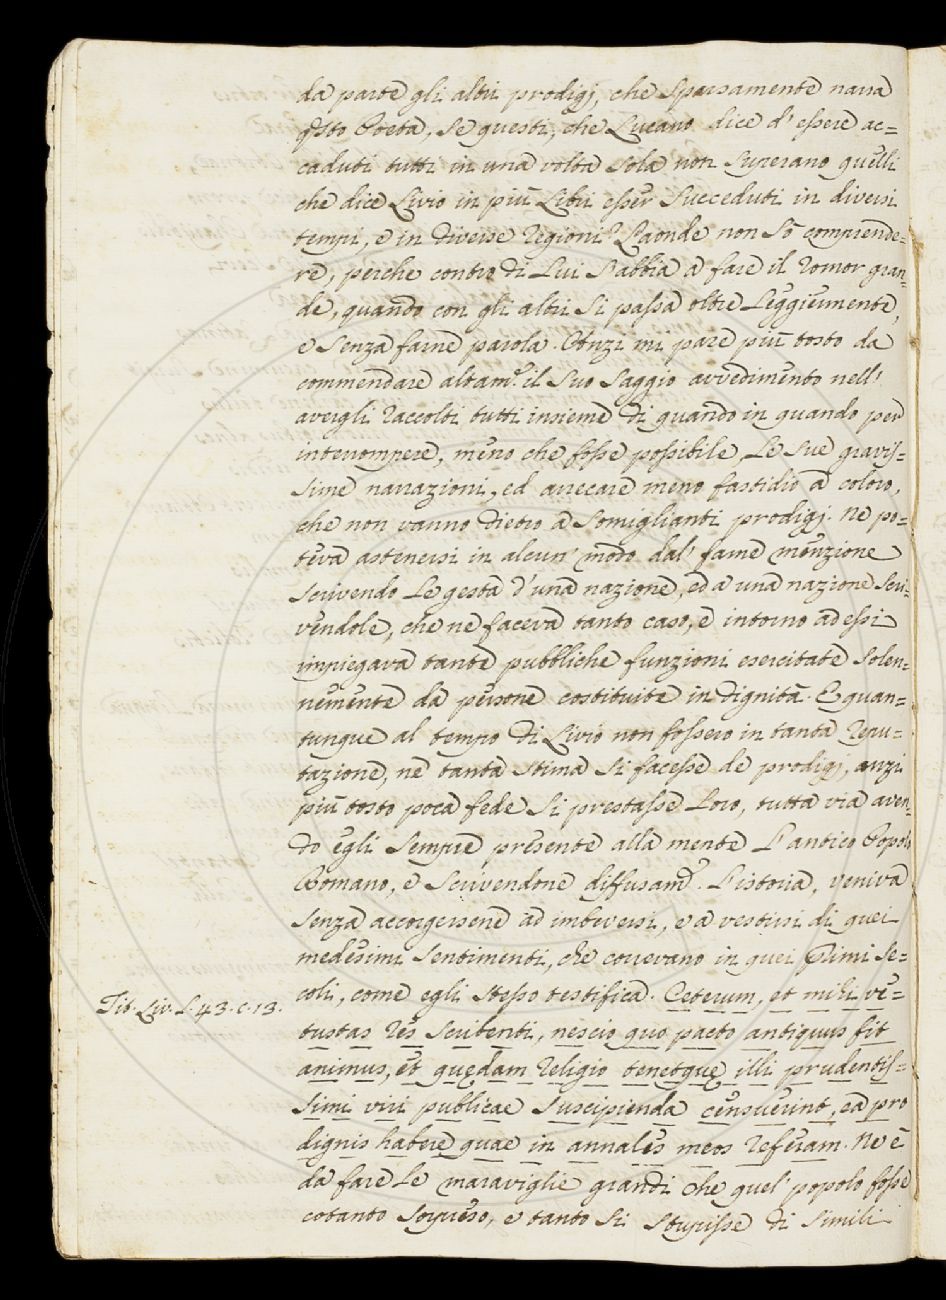 da parte gli altri prodigj, che sparsamente narra
q̃sto Poeta, se questi, che Lucano dice d' essere ac=
caduti tutti in una volta sola non superano quelli
che dice Livio in più Libri esser succeduti in diversi
tempi, e in diverse regioni? Laonde non sò comprende=
re, perche contro di Lui s'abbia a fare il romor gran=
de, quando con gli altri si passa oltre leggiermente,
e senza farne parola. Anzi mi pare più tosto da
commendare altam.e il suo saggio avvedimento nell'
avergli raccolti tutti insieme di quando in quando per
interrompere, meno che fosse possibile, Le sue gravis=
sime narrazioni, ed arrecare meno fastidio a coloro,
che non vanno dietro a somiglianti prodigj. Ne po=
teva astenersi in alcun' modo dal' farne menzione
scrivendo Le gesta d'una nazione, ed a una nazione scri=
vendole, che ne faceva tanto caso, e intorno ad essi
impiegava tante pubbliche funzioni esercitate solen=
nemente da persone costituite in dignità. E quan=
tunque al tempo di Livio non fossero in tanta repu=
tazione, ne tanta stima si facesse de prodigj, anzi
più tosto poca fede si prestasse Loro, tutta via aven=
do egli sempre presente alla mente L'antico Popolo
Romano, e scrivendone diffusam.e L'istoria, veniva
senza accorgersene ad imbeversi, e a vestirsi di quei
medesimi sentimenti, che correvano in quei Primi se=
coli, come egli stesso testifica. Ceterum, et mihi ve=
Tit. Liv. L. 43. c. 13.
tustas res scribenti, nescio quo pacto antiquus fit
animus, et quędam religio tenetquę illi prudentis=
simi viri publicae suscipienda censuerint, ea pro
dignis habere quae in annales meos referam. Ne è
da fare Le maraviglie grandi che quel' popolo fosse
cotanto sorpreso, e tanto si stupisse di simili